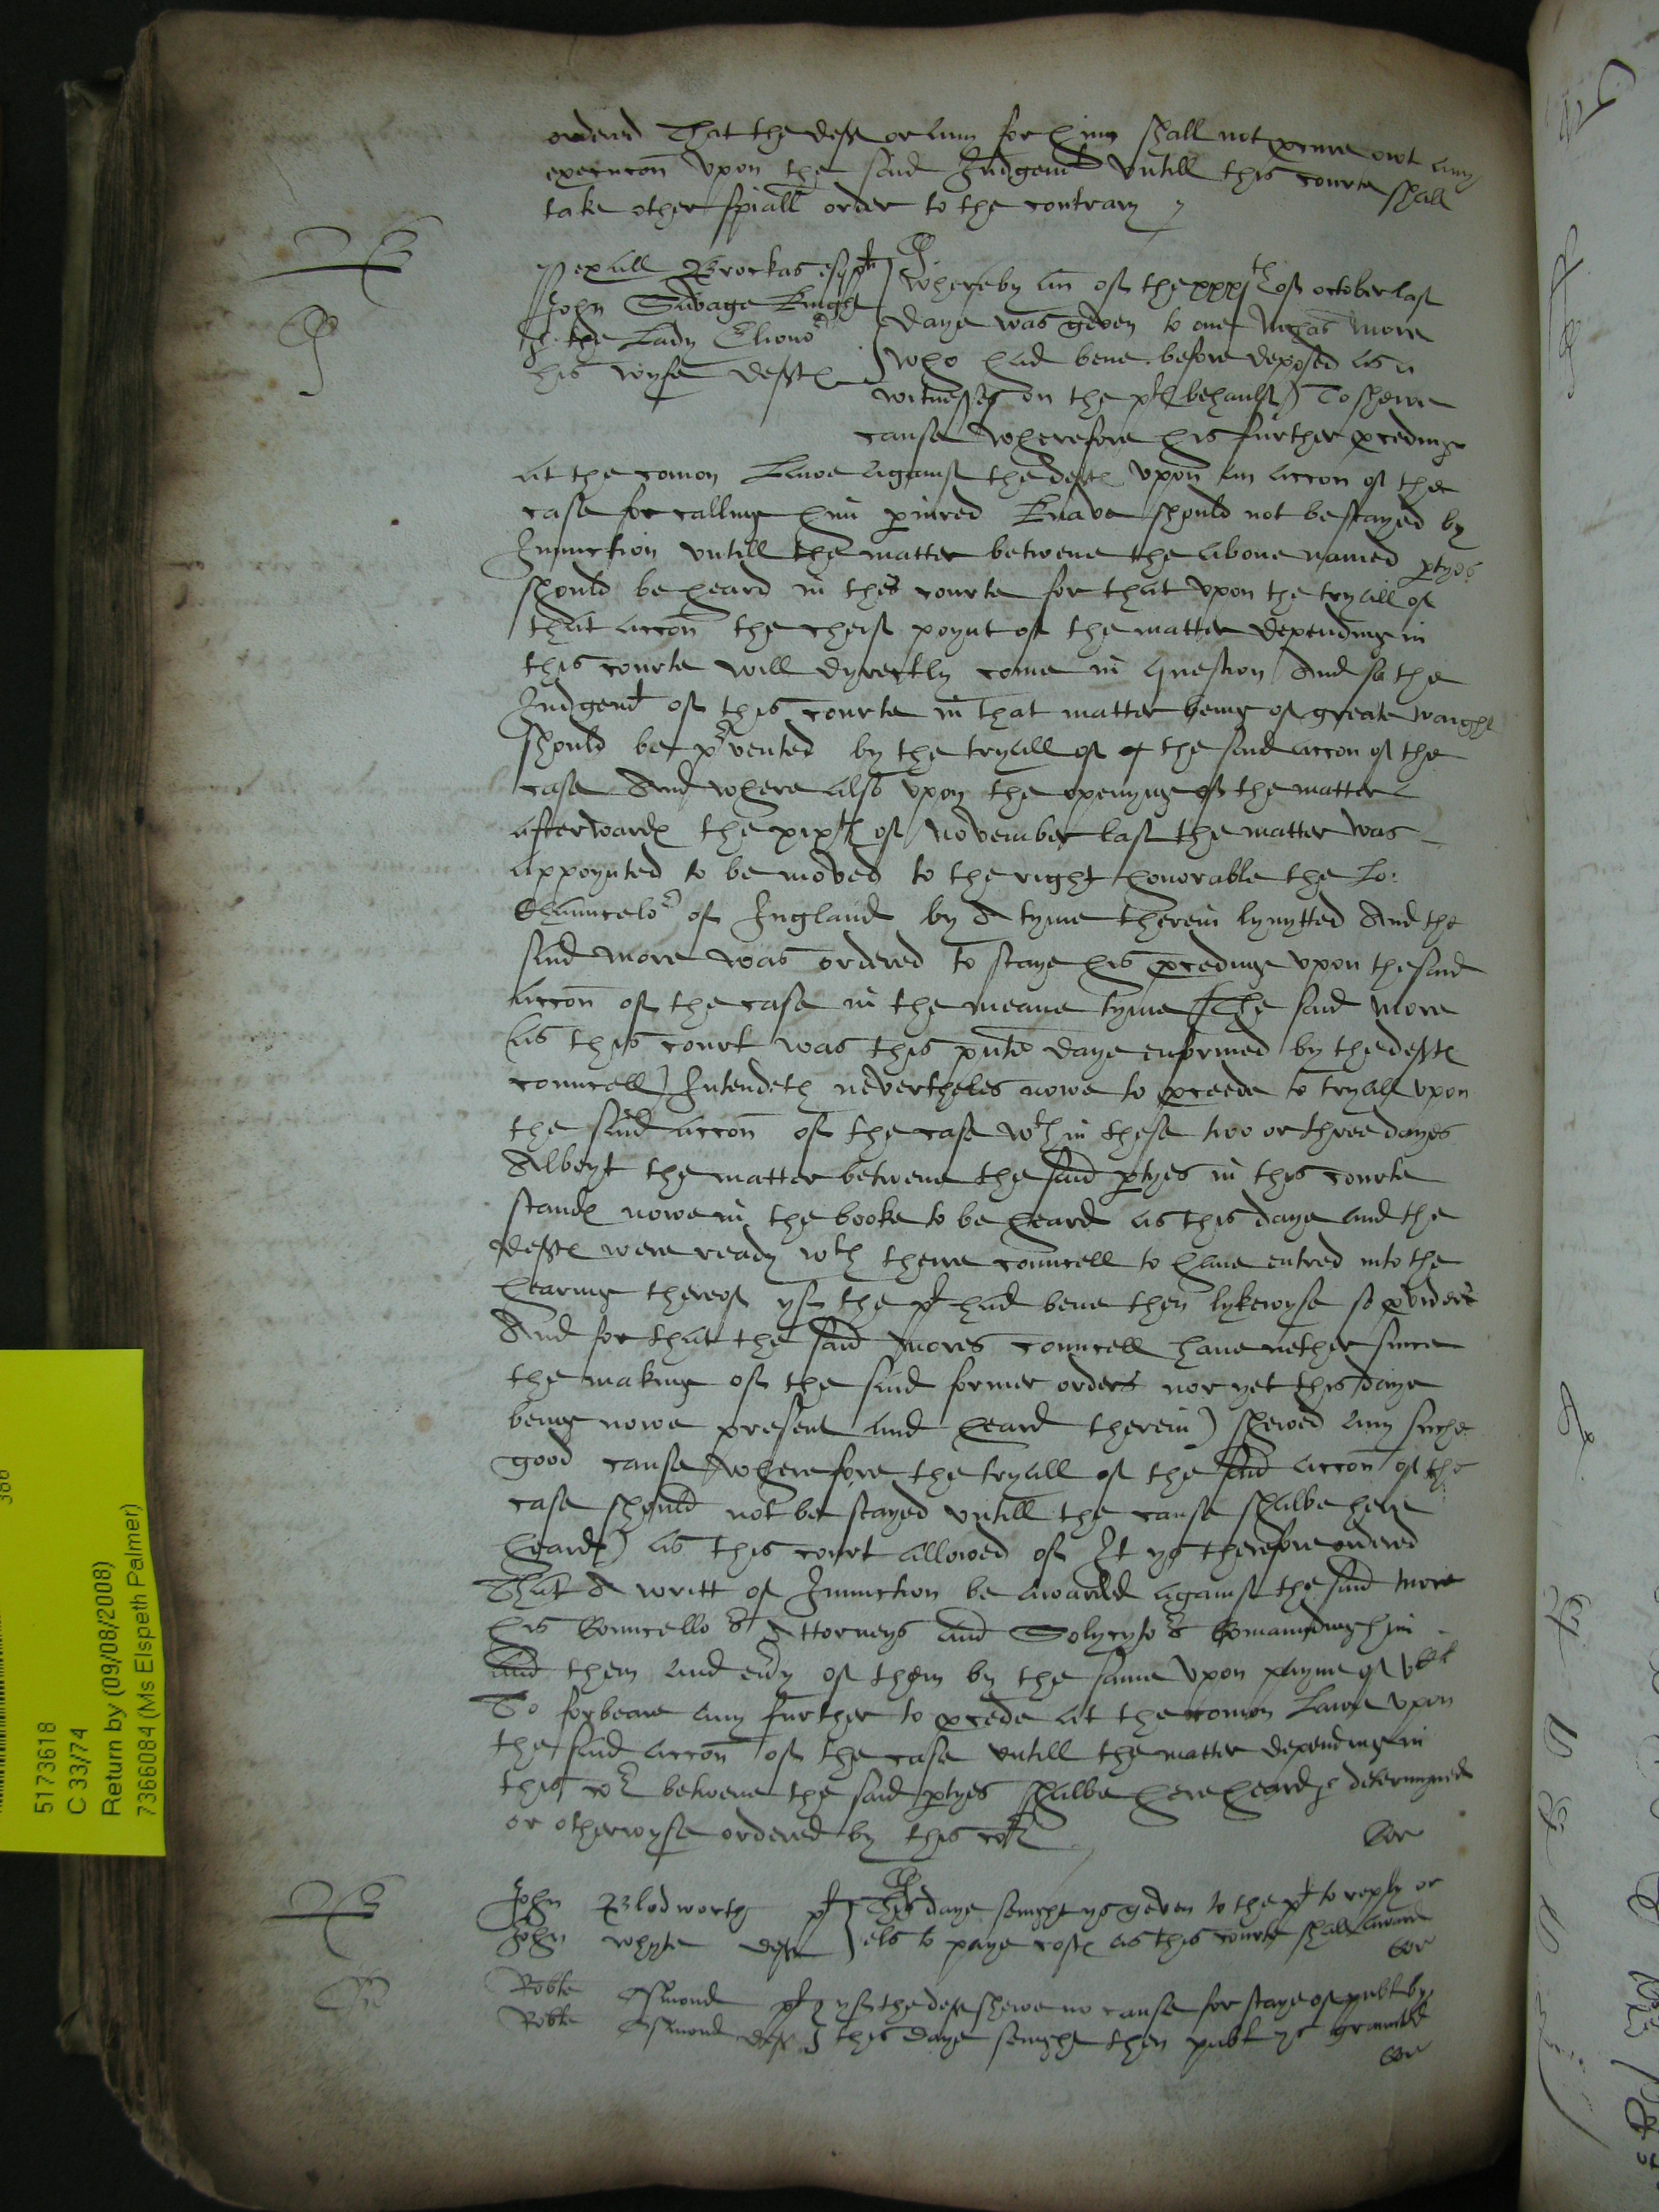 ordered That the deft or any for him shall not procure owt any
execucon vpon the said Judgemt vntill this courte shall
take other spiall order to the contrary
Pexall Brockas esq plt
John Savage knight
& the Lady Elionor
his wyfe defts
Whereby an of the xxxjth of october last
daye was geven to one Nichas More
who had bene before deposed as a
witnesses on the plts behaulf) To shewe
cause wherefore his further procedinge
at the comon Lawe against the defts vpon an accon of the
case for calling him periured knave should not be stayed by
Iniunction vntill the matter betwene the above named ptyes
should be heard in this courte for that vpon the tryall of
that accon the cheif poynt of the matter depending in
this courte will dyrectly come in question And so the
Judgemt of this courte in that matter being of greate waight
should be prvented by the tryall of the said accon of the
case And where also vpon the openyng of the matter
afterwards the xixth of November last the matter was
appoynted to be moved to the right honorable the Lo:
Chauncelor of England by A tyme therein lymytted And the
said More was ordered to staye his procedinge vpon the said
accon of the case in the meane tyme The said More
(as this court was this pnte daye enformed by the defts
councell) Intendeth nevertheles nowe to proceede to tryall vpon
the said accon of the case wth in these two or three dayes
Albeyt the matter betwene the said ptyes in this courte
stands nowe in the booke to be heard as this daye and the
defts were ready wth theire councell to have entred into the
hearing thereof yf the plt had bene then lykewyse so provided
And for that the said Mores councell have nether since
the making of the said former orders nor yet this daye
being nowe present and heard therein) shewed any suche
good cause wherefore the tryall of the said accon of the
case should not be stayed vntill the cause shalbe here
heard) as this court allowed of It ys therefore ordered
That A writt of Iniunction be awarded against the said More
his Councellors Attorneys and Solycytors Comaunding him
and them and evy of them by the same vpon payne of
To forbeare any further to procede at the comon Lawe vpon
the said accon of the case vntill the matter depending in
this cot betwene the said ptyes shalbe here heard & determyned
or otherwyse ordered by this cort
John Blodworth plt
John Whyte deft
This daye senight ys geven to the plt to reply or
els to paye costs as this courte shall award
Robte Osmond plt
Robte Osmond deft
yf the deft shewe no cause for staye of publ by
this daye senight then publ ys graunted
5173618
C 33/74
Return by (09/08/2008)
7366084 (Ms Elspeth Palmer)